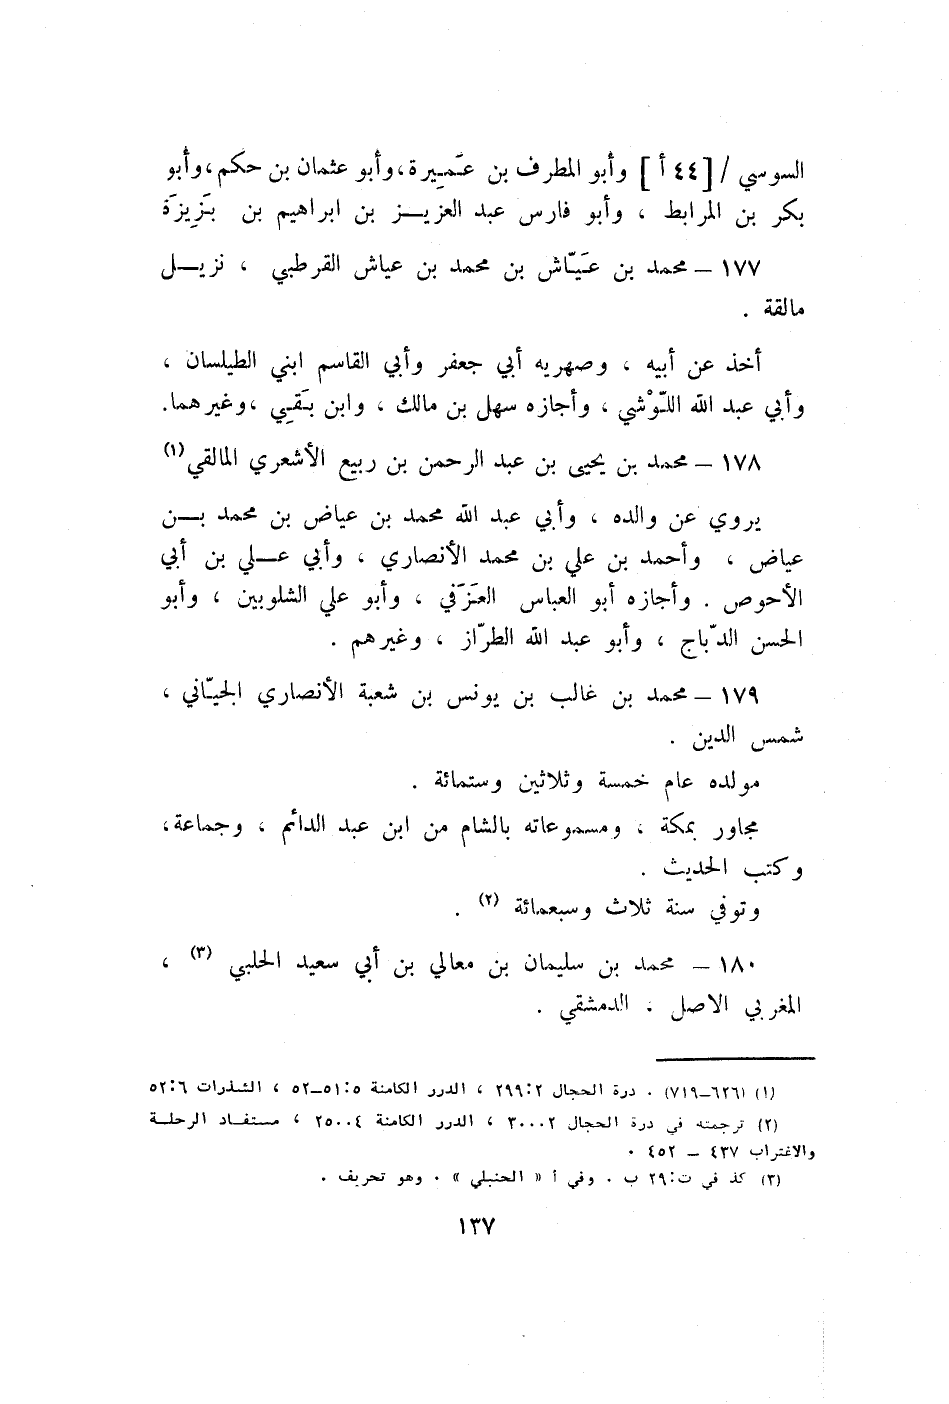 السوسي / [ ٤٤ أ ] وأبو المطرف بن عَمِيرة ، وأبو عثمان بن حكم ، وأبو
بكر بن المرابط ، وأبو فارس عبد العزيز بن ابراهيم بن بَزِيزَة
١٧٧ – محمد بن عَيّاش بن محمد بن عياش القرطبي ، نزيل
مالقة .
أخذ عن أبيه ، وصهريه أبي جعفر وأبي القاسم ابني الطيلسان ،
وأبي عبد الله اللّوْشي ، وأجازه سهل بن مالك ، وابن بَقِي ، وغيرهما.
١٧٨ – محمد بن يحيى بن عبد الرحمن بن ربيع الأشعري المالقي (١)
يروي عن والده ، وأبي عبد الله محمد بن عياض بن محمد بن
عياض ، وأحمد بن علي بن محمد الأنصاري ، وأبي علي بن أبي
الأحوص . وأجازه أبو العباس العَزَفي ، وأبو علي الشلوبين ، وأبو
الحسن الدبّاج ، وأبو عبد الله الطرّاز ، وغيرهم .
١٧٩ – محمد بن غالب بن يونس بن شعبة الأنصاري الجيّاني ،
شمس الدين .
مولده عام خمسة وثلاثين وستمائة .
مجاور بمكة ، ومسموعاته بالشام من ابن عبد الدائم ، وجماعة ،
وكتب الحديث .
وتوفي سنة ثلاث وسبعمائة (٢) .
١٨٠ – محمد بن سليمان بن معالي بن أبي سعيد الحلبي (٣) ،
المغربي الاصل ، الدمشقي .
(١) (٦٢٦–٧١٩) . درة الحجال ٢٩٩:٢ ، الدرر الكامنة ٥١:٥–٥٢ ، الشذرات ٥٢:٦
(٢) ترجمته في درة الحجال ٣٠٠:٢ ، الدرر الكامنة ٢٥٠:٤ ، مستفاد الرحلة
والاغتراب ٤٣٧ – ٤٥٢ .
(٣) كذ في ت:٢٩ ب . وفي أ « الحنبلي » . وهو تحريف .
١٣٧